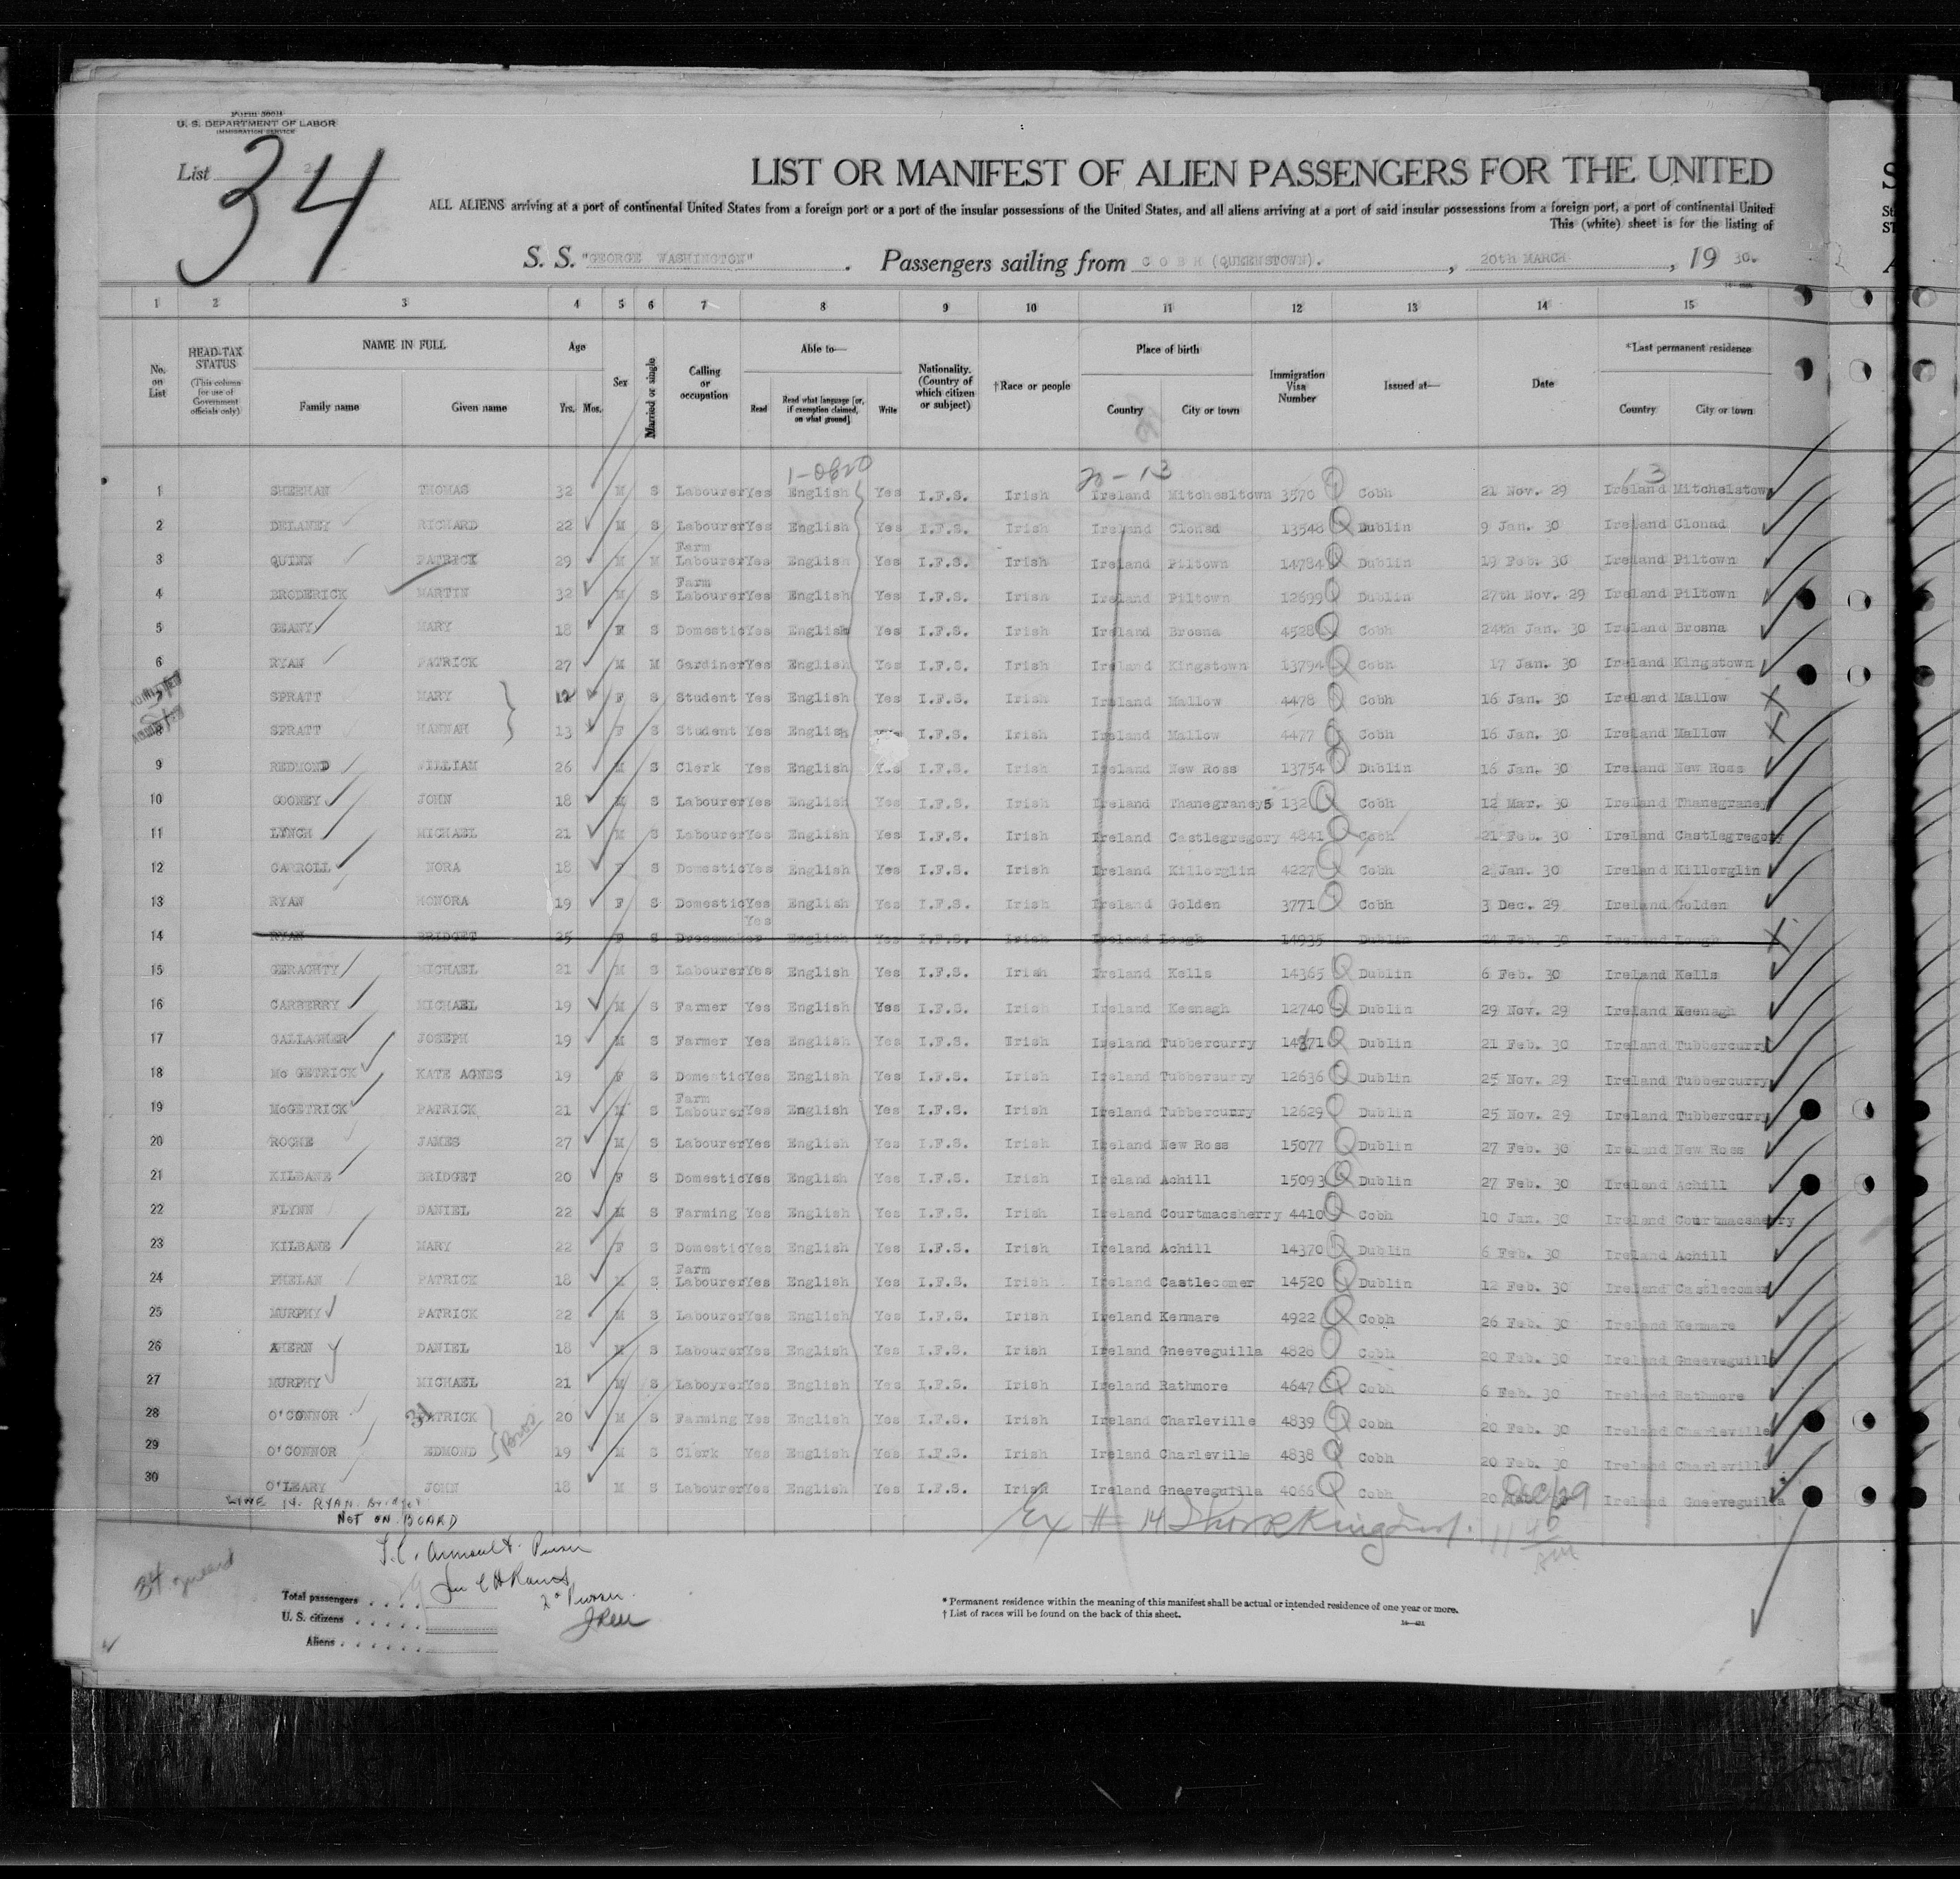 Form 500H
U. S. DEPARTMENT OF LABOR
IMMIGRATION SERVICE
List 2
34
LIST OR MANIFEST OF ALIEN PASSENGERS FOR THE UNITED
ALL ALIENS arriving at a port of continental United States from a foreign port or a port of the insular possessions of the United States, and all aliens arriving at a port of said insular possessions from a foreign port, a port of continental United
This (white) sheet is for the listing of
S. S. "GEORGE WASHINGTON". Passengers sailing from COBH (QUEENSTOWN). , 20th MARCH , 19 30.
1 2 3 4 5 6 7 8 9 10 11 12 13 14 15
No. on List
HEAD-TAX STATUS (This column for use of Government officials only)
NAME IN FULL Family name Given name
Age Yrs. Mos.
Sex
Married or single
Calling or occupation
Able to— Read Read what language [or, if exemption claimed, on what ground] Write
Nationality. (Country of which citizen or subject)
†Race or people
Place of birth Country City or town
Immigration Visa Number
Issued at—
Date
*Last permanent residence Country City or town
20-13 13
1 SHEEHAN THOMAS 32 M S Labourer Yes English Yes I.F.S. Irish Ireland Mitchesltown 3570 Cobh 21 Nov. 29 Ireland Mitchelstown
2 DELANEY RICHARD 22 M S Labourer Yes English Yes I.F.S. Irish Ireland Clonad 13548 Dublin 9 Jan. 30 Ireland Clonad
3 QUINN PATRICK 29 M M Farm Labourer Yes English Yes I.F.S. Irish Ireland Piltown 14784 Dublin 19 Feb. 30 Ireland Piltown
4 BRODERICK MARTIN 32 M S Farm Labourer Yes English Yes I.F.S. Irish Ireland Piltown 12699 Dublin 27th Nov. 29 Ireland Piltown
5 GEANY MARY 18 F S Domestic Yes English Yes I.F.S. Irish Ireland Brosna 4528 Cobh 24th Jan. 30 Ireland Brosna
6 RYAN PATRICK 27 M M Gardiner Yes English Yes I.F.S. Irish Ireland Kingstown 13794 Cobh 17 Jan. 30 Ireland Kingstown
SPRATT MARY 12 F S Student Yes English Yes I.F.S. Irish Ireland Mallow 4478 Cobh 16 Jan. 30 Ireland Mallow
8 SPRATT HANNAH 13 F S Student Yes English Yes I.F.S. Irish Ireland Mallow 4477 Cobh 16 Jan. 30 Ireland Mallow
9 REDMOND WILLIAM 26 M S Clerk Yes English Yes I.F.S. Irish Ireland New Ross 13754 Dublin 16 Jan. 30 Ireland New Ross
10 COONEY JOHN 18 M S Labourer Yes English Yes I.F.S. Irish Ireland Thanegraney 5 132 Cobh 12 Mar. 30 Ireland Thanegraney
11 LYNCH MICHAEL 21 M S Labourer Yes English Yes I.F.S. Irish Ireland Castlegregory 4841 Cobh 21 Feb. 30 Ireland Castlegregory
12 CARROLL NORA 18 F S Domestic Yes English Yes I.F.S. Irish Ireland Killorglin 4227 Cobh 2 Jan. 30 Ireland Killorglin
13 RYAN HONORA 19 F S Domestic Yes English Yes I.F.S. Irish Ireland Golden 3771 Cobh 3 Dec. 29 Ireland Golden
14 RYAN BRIDGET 25 F S Dressmaker Yes English Yes I.F.S. Irish Ireland Lough 14935 Dublin 24 Feb. 30 Ireland Lough
15 GERAGHTY MICHAEL 21 M S Labourer Yes English Yes I.F.S. Irish Ireland Kells 14365 Dublin 6 Feb. 30 Ireland Kells
16 CARBERRY MICHAEL 19 M S Farmer Yes English Yes I.F.S. Irish Ireland Keenagh 12740 Dublin 29 Nov. 29 Ireland Keenagh
17 GALLAGHER JOSEPH 19 M S Farmer Yes English Yes I.F.S. Irish Ireland Tubbercurry Dublin 21 Feb. 30 Ireland Tubbercurry
18 Mc GETRICK KATE AGNES 19 F S Domestic Yes English Yes I.F.S. Irish Ireland Tubbercurry 12636 Dublin 25 Nov. 29 Ireland Tubbercurry
19 McGETRICK PATRICK 21 M S Farm Labourer Yes English Yes I.F.S. Irish Ireland Tubbercurry 12629 Dublin 25 Nov. 29 Ireland Tubbercurry
20 ROCHE JAMES 27 M S Labourer Yes English Yes I.F.S. Irish Ireland New Ross 15077 Dublin 27 Feb. 30 Ireland New Ross
21 KILBANE BRIDGET 20 F S Domestic Yes English Yes I.F.S. Irish Ireland Achill 15093 Dublin 27 Feb. 30 Ireland Achill
22 FLYNN DANIEL 22 M S Farming Yes English Yes I.F.S. Irish Ireland Courtmacsherry 4410 Cobh 10 Jan. 30 Ireland Courtmacsherry
23 KILBANE MARY 22 F S Domestic Yes English Yes I.F.S. Irish Ireland Achill 14370 Dublin 6 Feb. 30 Ireland Achill
24 PHELAN PATRICK 18 M S Farm Labourer Yes English Yes I.F.S. Irish Ireland Castlecomer 14520 Dublin 12 Feb. 30 Ireland Castlecomer
25 MURPHY PATRICK 22 M S Labourer Yes English Yes I.F.S. Irish Ireland Kenmare 4922 Cobh 26 Feb. 30 Ireland Kenmare
26 AHERN DANIEL 18 M S Labourer Yes English Yes I.F.S. Irish Ireland Gneeveguilla 4828 Cobh 20 Feb. 30 Ireland Gneeveguilla
27 MURPHY MICHAEL 21 M S Laboyrer Yes English Yes I.F.S. Irish Ireland Rathmore 4647 Cobh 6 Feb. 30 Ireland Rathmore
28 O'CONNOR PATRICK 20 M S Farming Yes English Yes I.F.S. Irish Ireland Charleville 4839 Cobh 20 Feb. 30 Ireland Charleville
29 O'CONNOR EDMOND Bros 19 M S Clerk Yes English Yes I.F.S. Irish Ireland Charleville 4838 Cobh 20 Feb. 30 Ireland Charleville
30 O'LEARY JOHN 18 M S Labourer Yes English Yes I.F.S. Irish Ireland Gneeveguilla 4066 Cobh 20 Dec/29 Ireland Gneeveguilla
LINE 14. RYAN Bridget
NOT ON BOARD
Ex # 14
Purser
2º Purser.
34
Total passengers
U. S. citizens
Aliens
* Permanent residence within the meaning of this manifest shall be actual or intended residence of one year or more.
† List of races will be found on the back of this sheet.